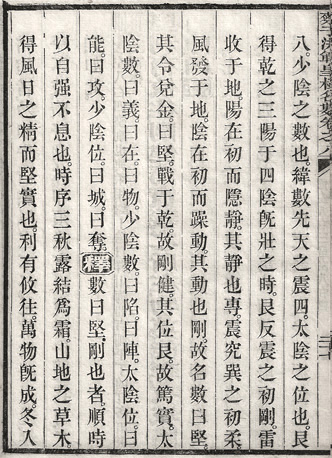 八少陰之數也。緯數先天之震四。太陰之位也。艮
得乾之三陽于四陰旣壯之時。艮反震之初剛。雷
收于地。陽在初而隱靜。其靜也專。震究巽之初柔
風發于地。陰在初而躁動。其動也剛。故名數曰堅。
其令兌金。曰堅。戰于乾。故剛健。其位艮。故篤實。太
陰數。曰義。曰在。曰物。少陰數。曰陷。曰陣。太陰位。曰
能。曰攻。少陰位。曰城。曰奪。釋數曰堅。剛也者。順時
以自强不息也。時序三秋露結爲霜。山地之草木
得風日之精而堅實也。利有攸往。萬物旣成冬入